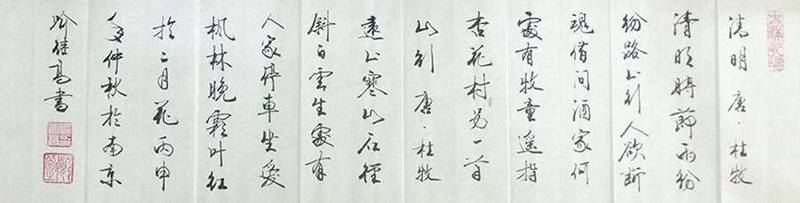 清明 唐·杜牧
清明時節雨紛
紛路上行人欲斷
魂借問酒家何
處有牧童遥指
杏花村另一首
山行 唐·杜牧
遠上寒山石徑
斜白雲生處有
人家停車坐愛
枫林晚霜叶红
於二月花丙申
年仲秋於南京
高書